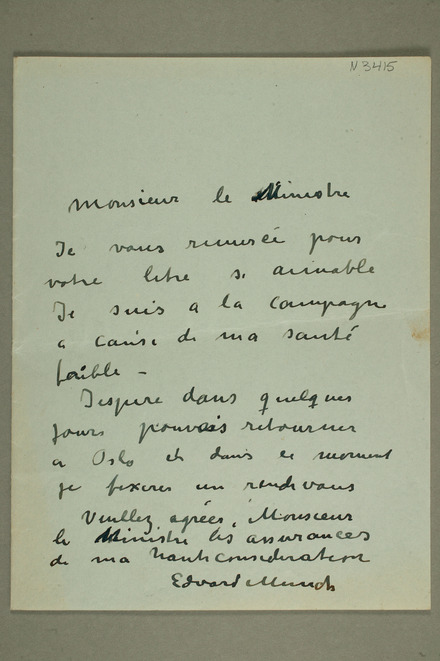 N 3415
Monsieur le Ministre
Je vous remercée pour
votre letre si aimable
Je suis a la campagne
a cause de ma santé
faible –
Jespere dans quelques
jours pouvais retourner
a Oslo et dans ce moment
je fixerer un rendevous
Veuillez agrées, Monsieur
le Ministre les assurances
de ma haute consideration
Edvard Munch